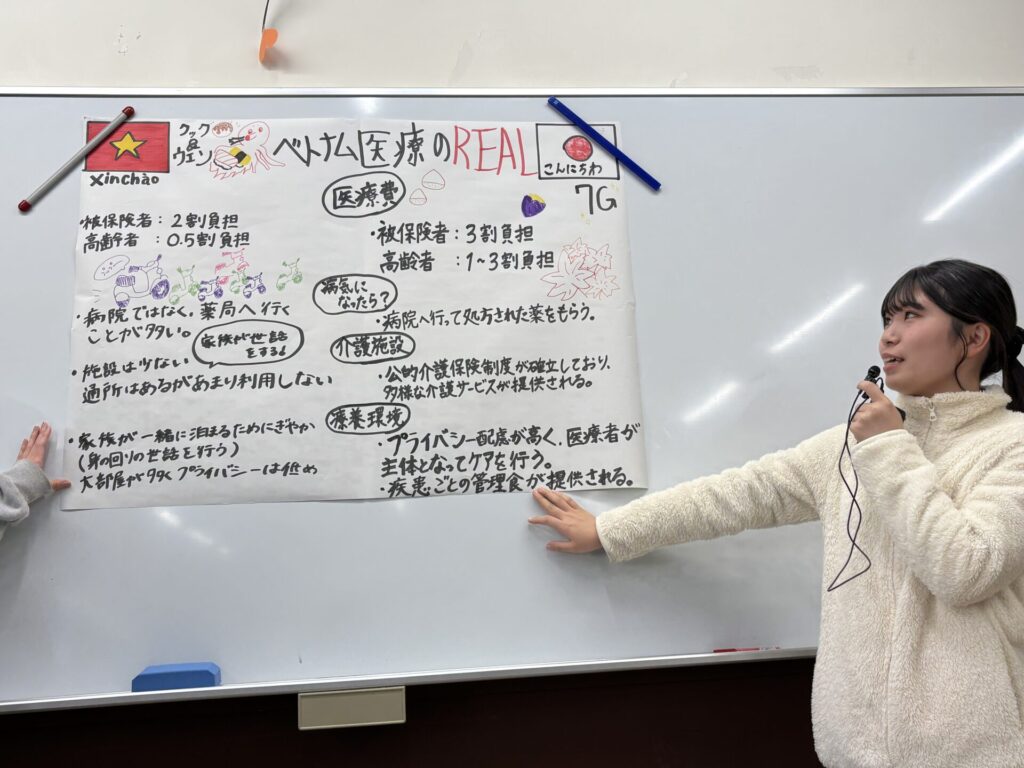 クック
&
ウェン
ベトナム医療のREAL
xinchào
こんにちわ
7G
医療費
・被保険者：2割負担
高齢者：0.5割負担
・被保険者：3割負担
高齢者：1~3割負担
病気に
なったら？
・病院ではなく、薬局へ行く
ことが多い。
・病院へ行って処方された薬をもらう。
家族が世話
をする！
介護施設
・施設は少ない
通所はあるがあまり利用しない
・公的介護保険制度が確立しており、
多様な介護サービスが提供される。
療養環境
・家族が一緒に泊まるためにぎやか
(身の回りの世話を行う)
大部屋が多くプライバシーは低め
・プライバシー配慮が高く、医療者が
主体となってケアを行う。
・疾患ごとの管理食が提供される。